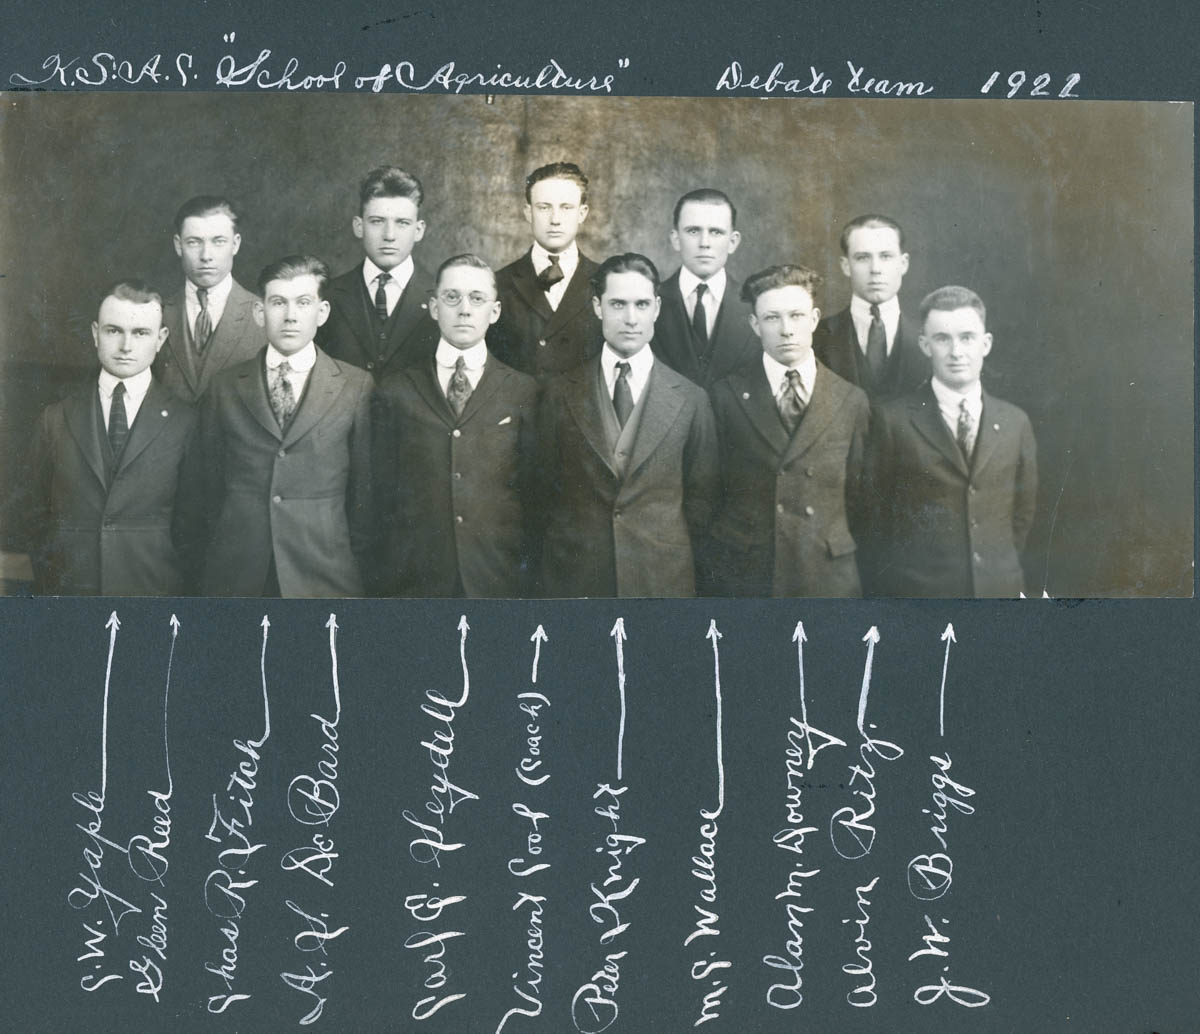 K.S.A.C. "School of Agriculture" Debate team 1921
C.W. Yaple
Gleen Reed
Chas R. Fitch
A.H. DeBard
Carl Heydell
Vincent Cool (coach)
Peter Knight
M.C. Wallace
Alan M. Downey
Alvin Ritz.
J.W. Briggs